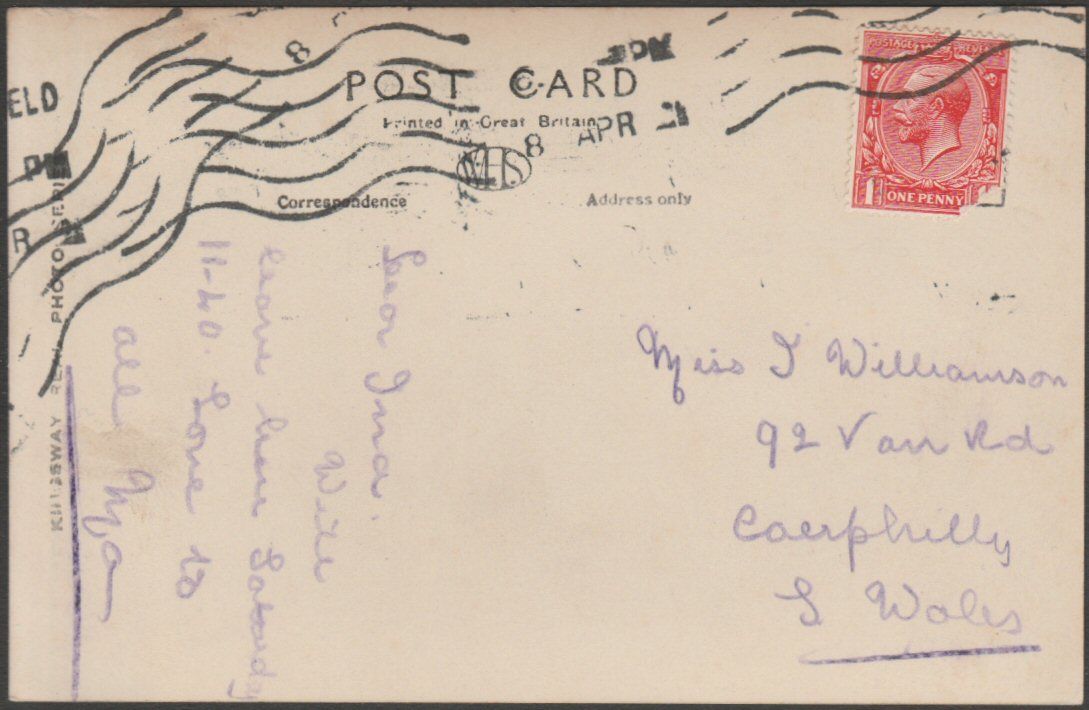 8
ELD
8 APR
POST CARD
Printed in Great Britain
WHS
Correspondence
Address only
POSTAGE REVENUE
1
ONE PENNY
KINGSWAY REAL PHOTO SERIES
Dear Ina.
Will
leave here Saturday
11-40. Love to
all Ma
Miss I Williamson
92 Van Rd
Caerphilly
S Wales